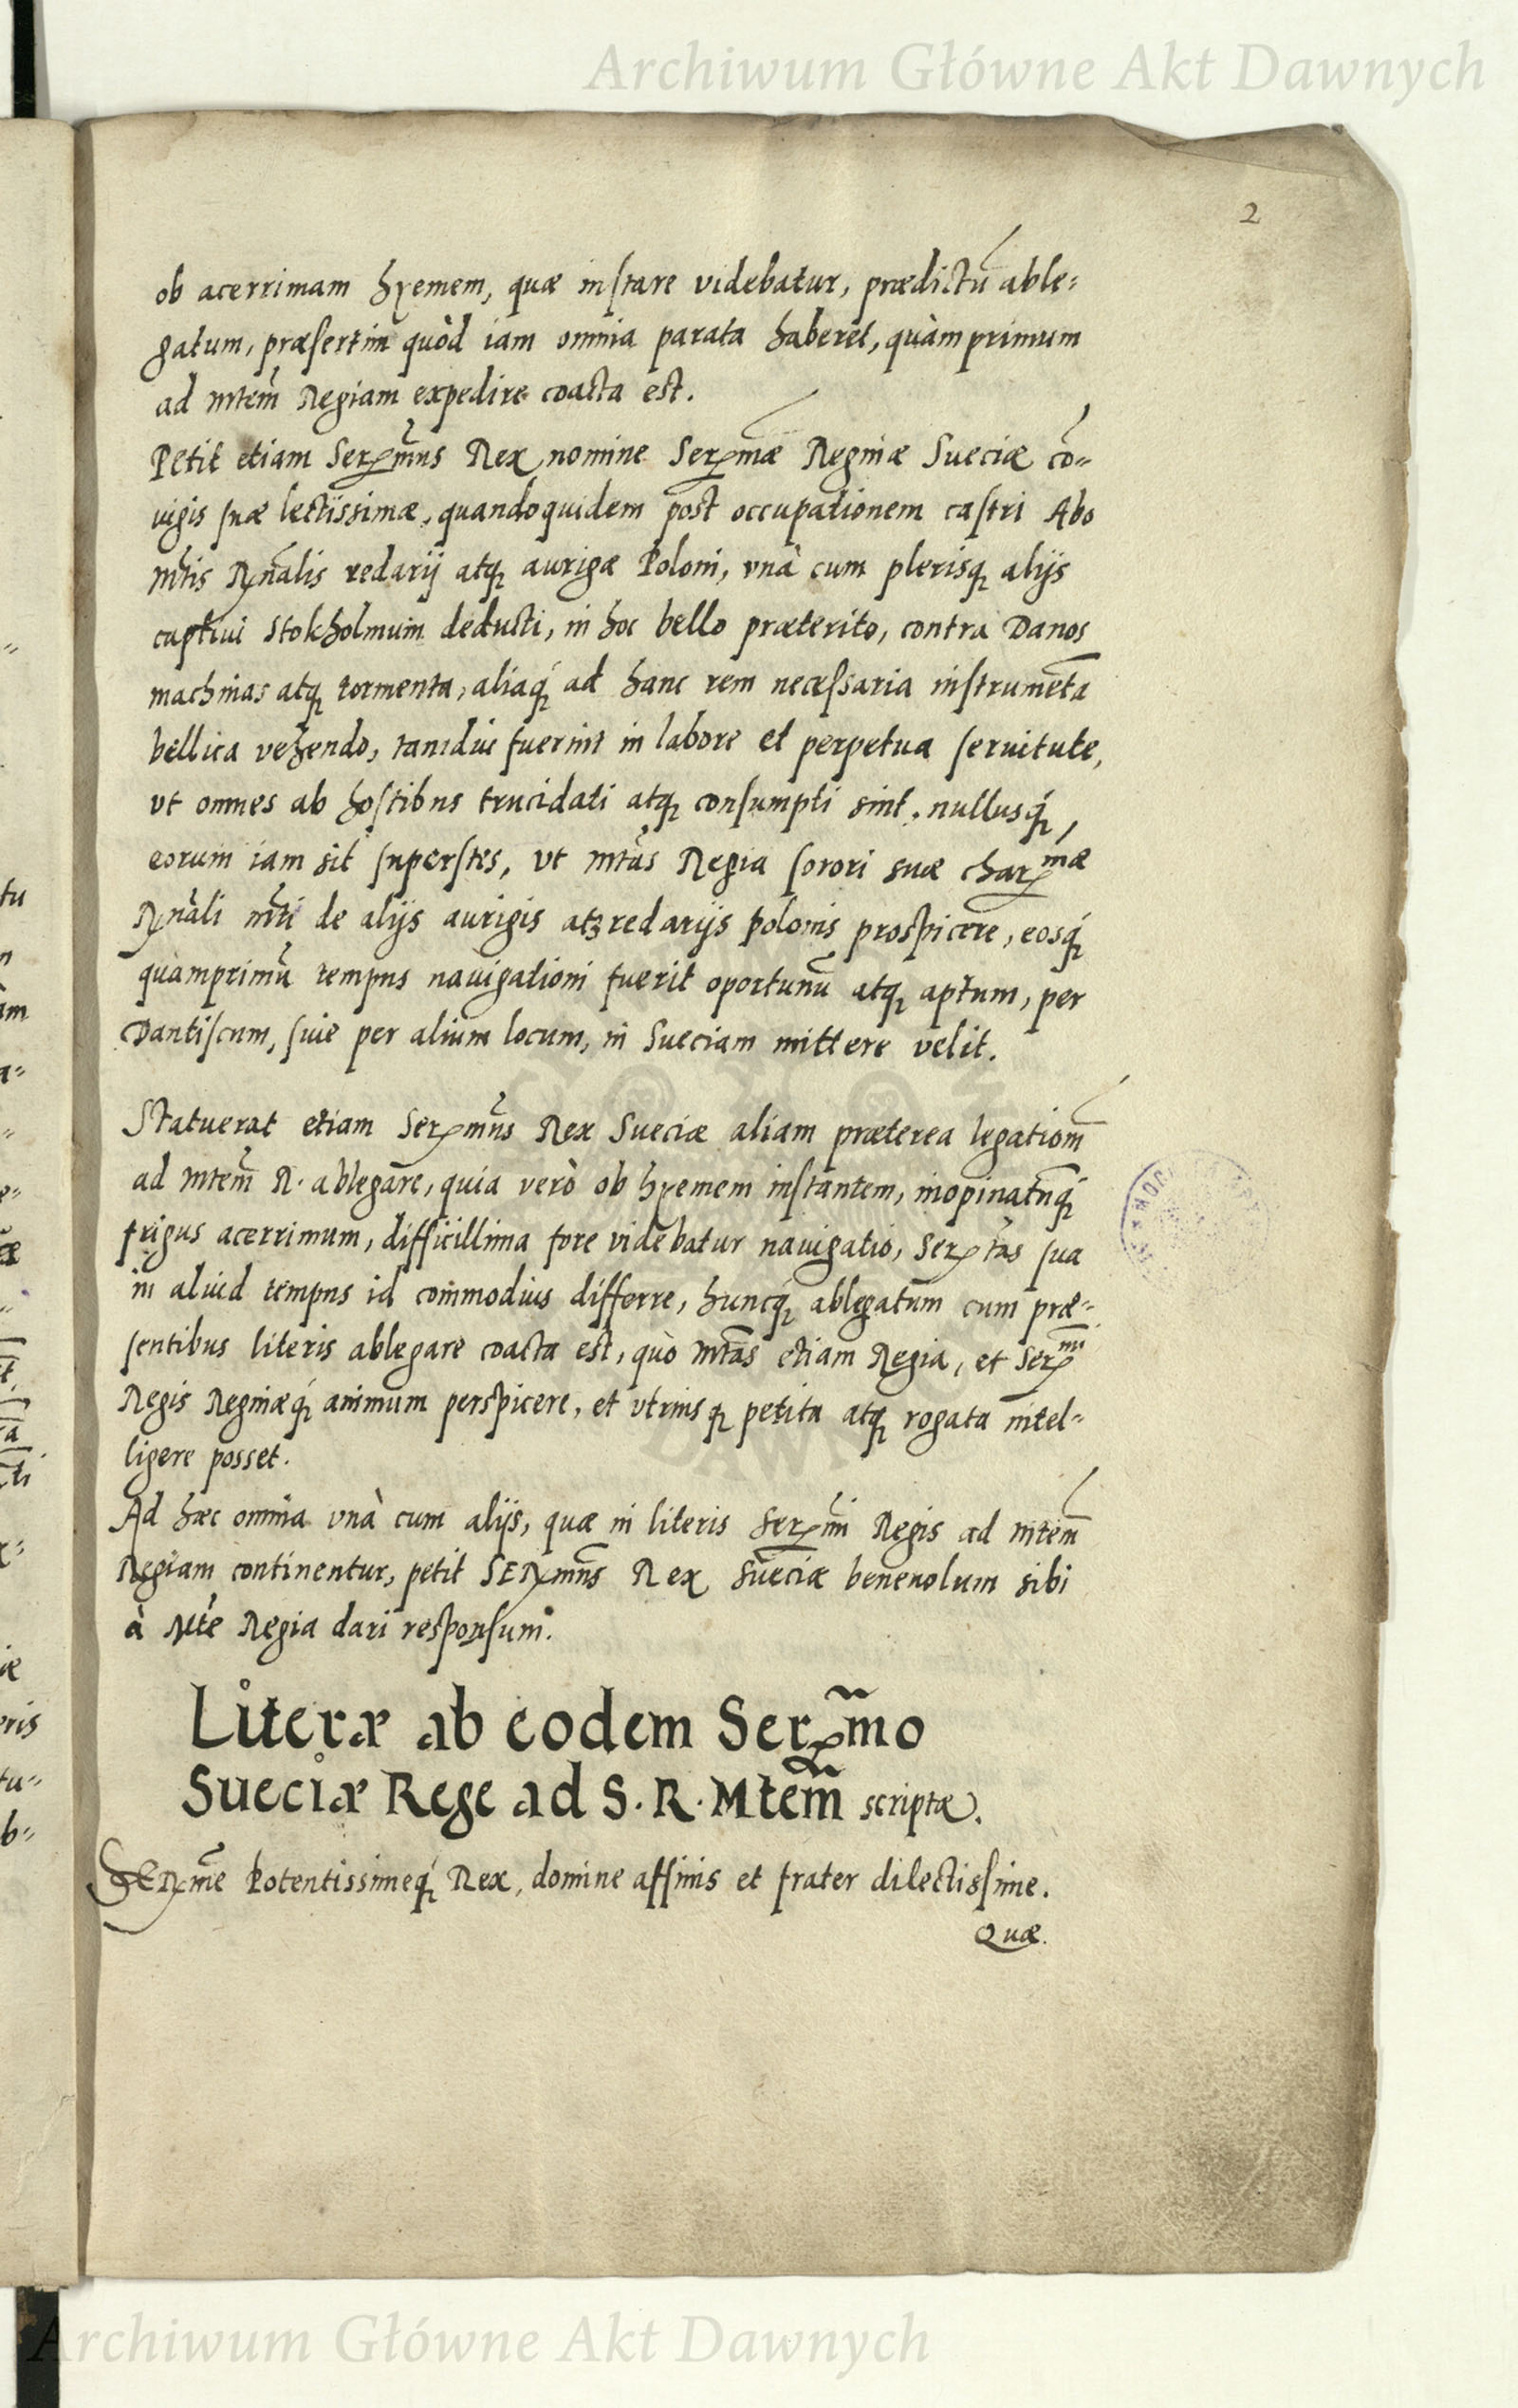 Archiwum Główne Akt Dawnych
2
ob acerrimam hyemem, quæ instare videbatur, prædictũ able=
gatum, præsertim quòd iam omnia parata haberet, quàm primum
ad Mtem̃ Regiam expedire coacta est.
Petit etiam Serꝑmñs Rex nomine Serꝑmæ Reginæ Sueciæ cõ=
iugis suæ lectissimæ, quandoquidem post occupationem castri Abo
Mt̃is Rỹnalis redarij atqꝫ aurigæ Poloni, vnà cum plerisqꝫ alijs
captiui Stokholmum deducti, in hoc bello præterito, contra Danos
machinas atqꝫ tormenta, aliaqꝫ́ ad hanc rem necessaria instrumẽta
bellica vehendo, tamdiu fuerint in labore et perpetua seruitute,
vt omnes ab hostibus trucidati atqꝫ consumpti sint, nullusqꝫ́
eorum iam sit superstes, vt Mtãs Regia sorori suæ charꝑmæ
Rỹnali Mt̃i de alijs aurigis atqꝫ redarijs polonis prospicere, eosqꝫ́
quàmprimũ tempus nauigationi fuerit oportunũ atqꝫ aptum, per
Dantiscum, siue per alium locum, in Sueciam mittere velit.
Statuerat etiam Serꝑmñs Rex Sueciæ aliam præterea legationẽ
ad Mtem̃ R. ablegare, quia verò ob hyemem instantem, inopinatũqꝫ́
frigus acerrimum, difficillima fore videbatur nauigatio, Serꝑtãs sua
in aliud tempus id commodius differre, huncqꝫ́ ablegatum cum præ=
sentibus literis ablegare coacta est, quò Mtãs etiam Regia, et Serꝑmi
Regis Reginæqꝫ́ animum perspicere, et vtriusqꝫ petita atqꝫ rogata intel=
ligere posset.
Ad hæc omnia vnà cum alijs, quæ in literis Serꝑmi Regis ad Mtem̃
Regiam continentur, petit SERꝑmñs Rex Sueciæ beneuolum sibi
à Mt̃e Regia dari responsum.
Literæ ab eodem Serꝑm̃o
Sueciæ Rege ad S. R. Mtem̃ scriptæ.
SERꝑm̃e Potentissimeqꝫ́ Rex, domine affinis et frater dilectissime.
Quæ.
Archiwum Główne Akt Dawnych